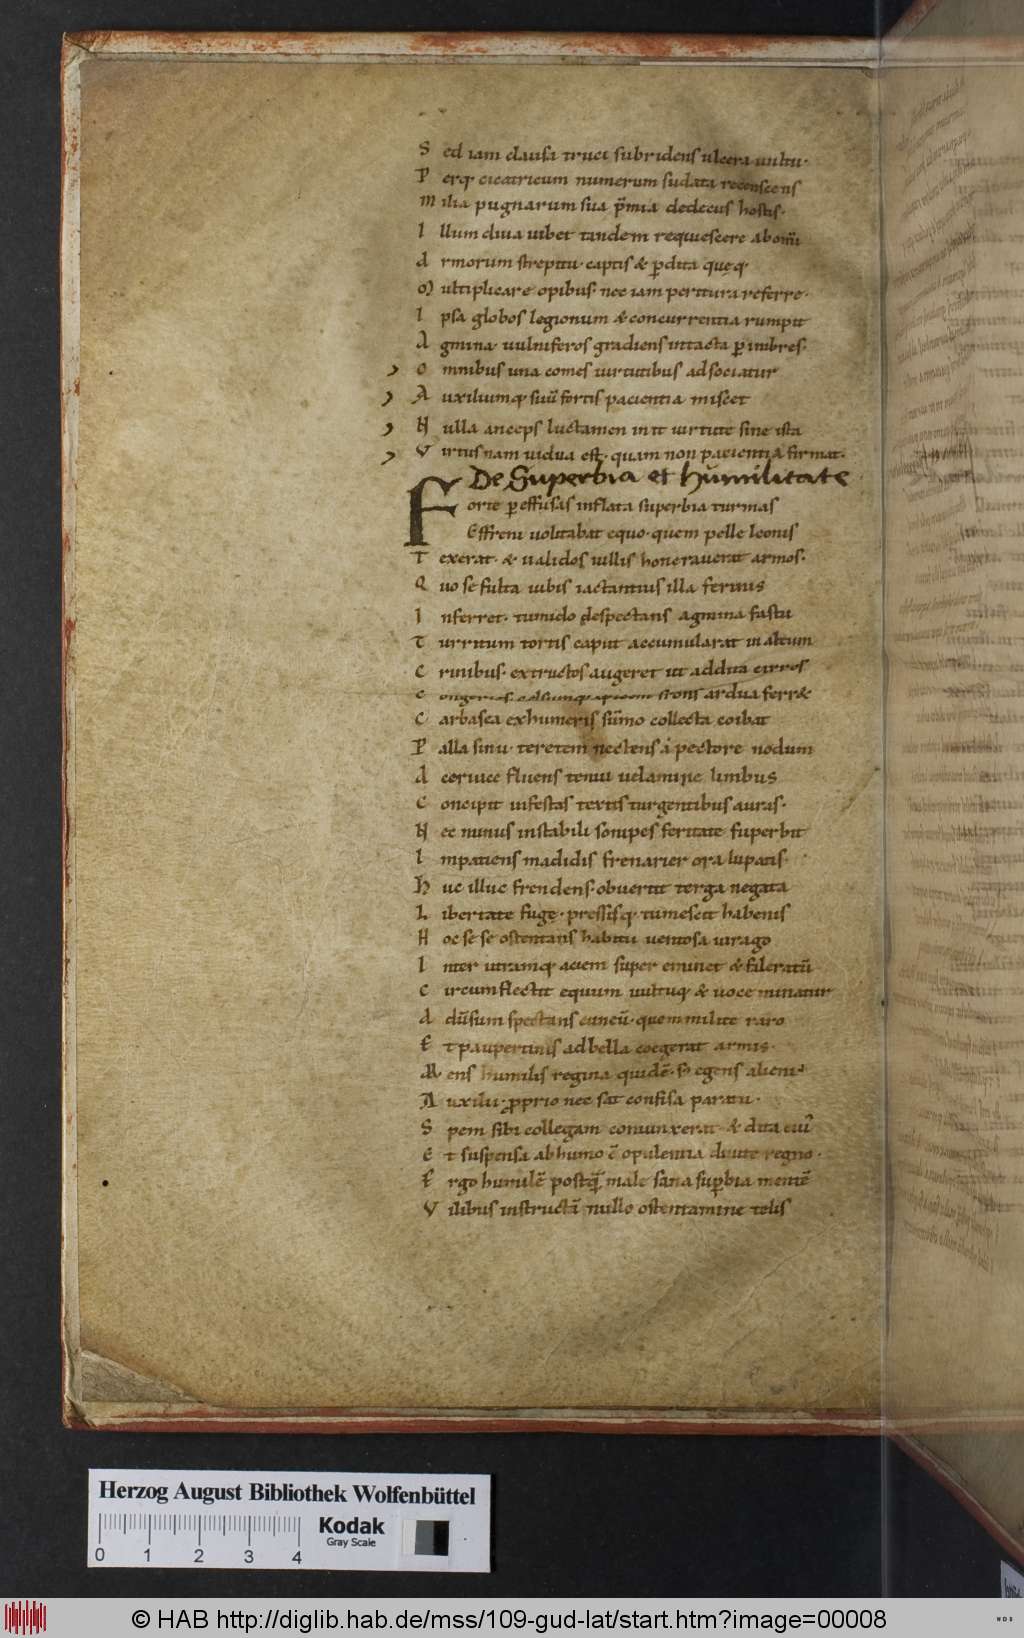 S ed iam clausa truci subridens ulcera uultu·
P erq; cicatricum numerum sudata recenscens
M ilia pugnarum sua p̄mia dedecus hostis·
I llum diua iubet tandem requiescere ab om̄i
A rmorum strepitu· captis & p̱dita quęq;
M ultiplicare opibus· nec iam peritura referre·
I psa globos legionum & concurrentia rumpit
A gmina uulniferos gradiens intacta p̱ imbres·
O mnibus una comes uirtutibus adsociatur
A uxiliumq; suū fortis pacientia miscet
N ulla anceps luctamen init uirtute sine ista
V irtus nam uidua est· quam non pacientia firmat·
De Superbia et humilitate
F orte p̱ effusas inflata superbia turmas
Effreni uolitabat equo· quem pelle leonis
T exerat· & ualidos uillis honerauerat armos·
Q uo se fulta iubis iactantius illa ferinis
I nferret· tumido despectans agmina fastu
T urritum tortis caput accumularat in altum
C rinibus· extructos augeret ut addita cirros
C ongeries· celsumq; apicem frons ardua ferr&
C arbasea ex humeris sūmo collecta coibat
P alla sinu· teretem nectens a pectore nodum
A ceruice fluens tenui uelamine limbus
C oncipit infestas textis turgentibus auras·
N ec minus instabili sonipes feritate superbit
I mpatiens madidis frenarier ora lupatis·
H uc illuc frendens· obuertit terga negata
L ibertate fugę· pressisq; tumescit habenis
H oc se se ostentans habitu uentosa uirago
I nter utramq; aciem super eminet & faleratū
C ircumflectit equum uultuq; & uoce minatur
A dūsum spectans cuneū· quem milite raro
E t paupertinis ad bella coegerat armis·
M ens humilis regina quidē· s; egens alieni
A uxilii· p̱prio nec sat confisa paratu·
S pem sibi collegam coniunxerat & dita cui
E t suspensa ab humo ē opulentia diuite regno·
E rgo humilē postq̄ male sana sup̱bia mentē
V ilibus instructā nullo ostentamine telis
Herzog August Bibliothek Wolfenbüttel
Kodak
Gray Scale
0 1 2 3 4
© HAB http://diglib.hab.de/mss/109-gud-lat/start.htm?image=00008